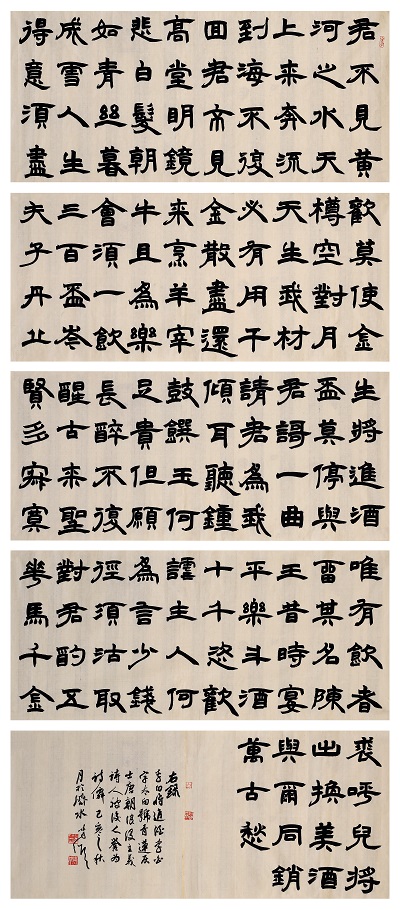 君不見黃
河之水天
上來奔流
到海不復
回君不見
高堂明鏡
悲白髮朝
如青絲暮
成雪人生
得意須盡
歡莫使金
樽空對月
天生我材
必有用千
金散盡還
來烹羊宰
牛且為樂
會須一飲
三百盃岑
夫子丹丘
生將進酒
盃莫停與
君謌一曲
請君為我
傾耳聽鐘
鼓饌玉何
足貴但願
長醉不復
醒古來聖
賢多寂寞
唯有飲者
留其名陳
王昔時宴
平樂斗酒
十千恣歡
謔主人何
為言少錢
徑須沽取
對君酌五
花馬千金
裘呼兒將
出換美酒
與爾同銷
萬古愁
右錄
李白將進酒李白
字太白號青蓮居
士唐朝浪漫主義
詩人被後人譽為
詩僊己亥之秋
月於濟水